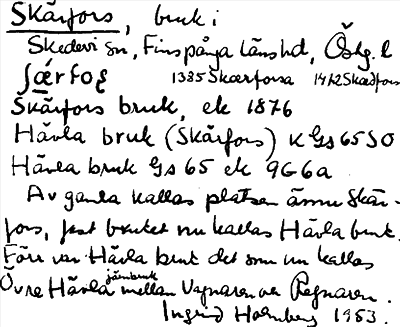 Skårfors, bruk i
Skedevi sn, Finspånga länshd, Östg. l
1385 Skœrforsa 1412 Skædfors
Skårfors bruk, ek 1876
Hävla bruk (Skårfors) K Gs 65 SO
Hävla bruk Gs 65 ek 9G6a
Av gamla kallas platsen ännu Skår-
fors, fast bruket nu kallas Hävla bruk.
Förr var Hävla bruk det som nu kallas
Övre Hävla järnbruk mellan Vagnaren och Regnaren.
Ingrid Holmberg 1953.